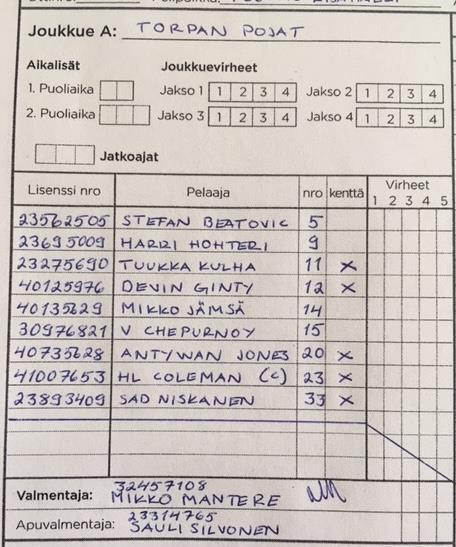 Joukkue A: TORPAN POJAT
Aikalisät Joukkuevirheet
1. Puoliaika Jakso 1 1 2 3 4 Jakso 2 1 2 3 4
2. Puoliaika Jakso 3 1 2 3 4 Jakso 4 1 2 3 4
Jatkoajat
Lisenssi nro Pelaaja nro kenttä Virheet
1 2 3 4 5
23562505 STEFAN BEATOVIC 5
23695009 HARRI HOHTERI 9
23275690 TUUKKA KULHA 11 X
40125976 DEVIN GINTY 12 X
40135629 MIKKO JÄMSÄ 14
30976821 V CHEPURNOY 15
40735628 ANTYWAN JONES 20 X
41007653 HL COLEMAN (C) 23 X
23893409 SAD NISKANEN 33 X
32457108
Valmentaja: MIKKO MANTERE
23314765
Apuvalmentaja: SAULI SILVONEN